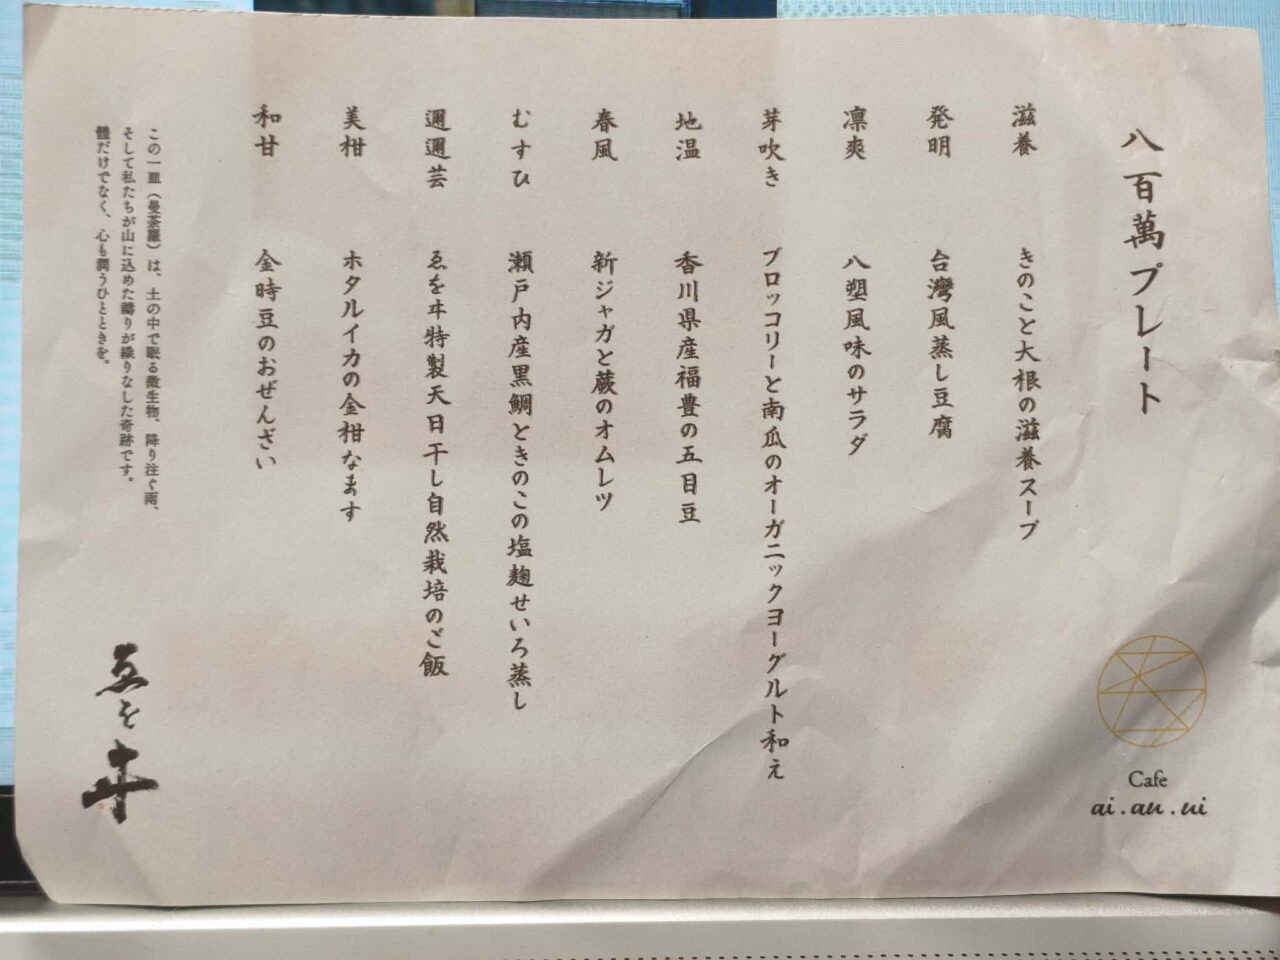 八百萬プレート
滋養　きのこと大根の滋養スープ
発明　台灣風蒸し豆腐
凛爽　八朔風味のサラダ
芽吹き　ブロッコリーと南瓜のオーガニックヨーグルト和え
地温　香川県産福豊の五目豆
春風　新ジャガと蕨のオムレツ
むすひ　瀬戸内産黒鯛ときのこの塩麹せいろ蒸し
邇邇芸　ゑをヰ特製天日干し自然栽培のご飯
美柑　ホタルイカの金柑なます
和甘　金時豆のおぜんざい
この一皿（曼荼羅）は、土の中で眠る微生物、降り注ぐ雨、
そして私たちが山に込めた禱りが織りなした奇跡です。
體だけでなく、心も潤うひとときを。
ゑをヰ
Cafe
ai.au.ui